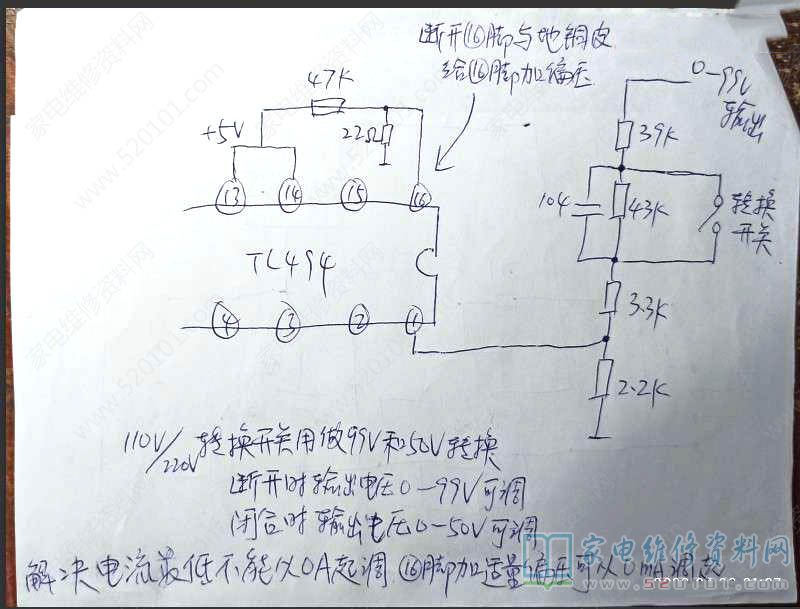 断开⑯脚与地铜皮
给⑯脚加偏压
0-99V
输出
47K
+5V
22Ω
39K
13
14
15
16
104
43K
转换
开关
TL494
4
3
2
1
3.3K
2.2K
110V/220V 转换开关用做99V和50V转换
断开时输出电压0-99V可调
闭合时输出电压0-50V可调
解决电流最低不能从0A起调,⑯脚加适量偏压可从0mA调起
家电维修资料网
www.520101.com